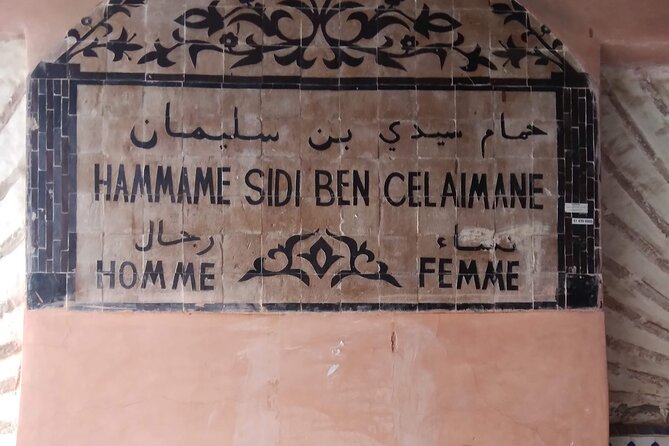 حمام سيدي بن سليمان
HAMMAME SIDI BEN CELAIMANE
رجال نساء
HOMME FEMME